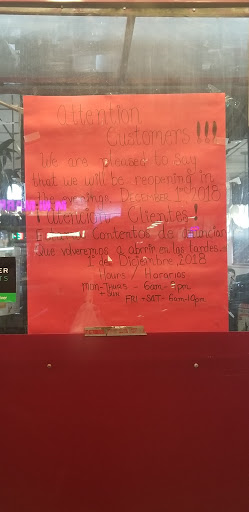 Attention
Customers!!!
We are pleased to say
that we will be reopening in
the evenings December 1st 2018
¡Atención Clientes!
Estamos Contentos de anunciar
que volveremos a abrir en las tardes.
1st de Diciembre, 2018
Hours / Horarios
Mon-Thurs - 6am-9pm
+ Sun
Fri + Sat = 6am-10pm